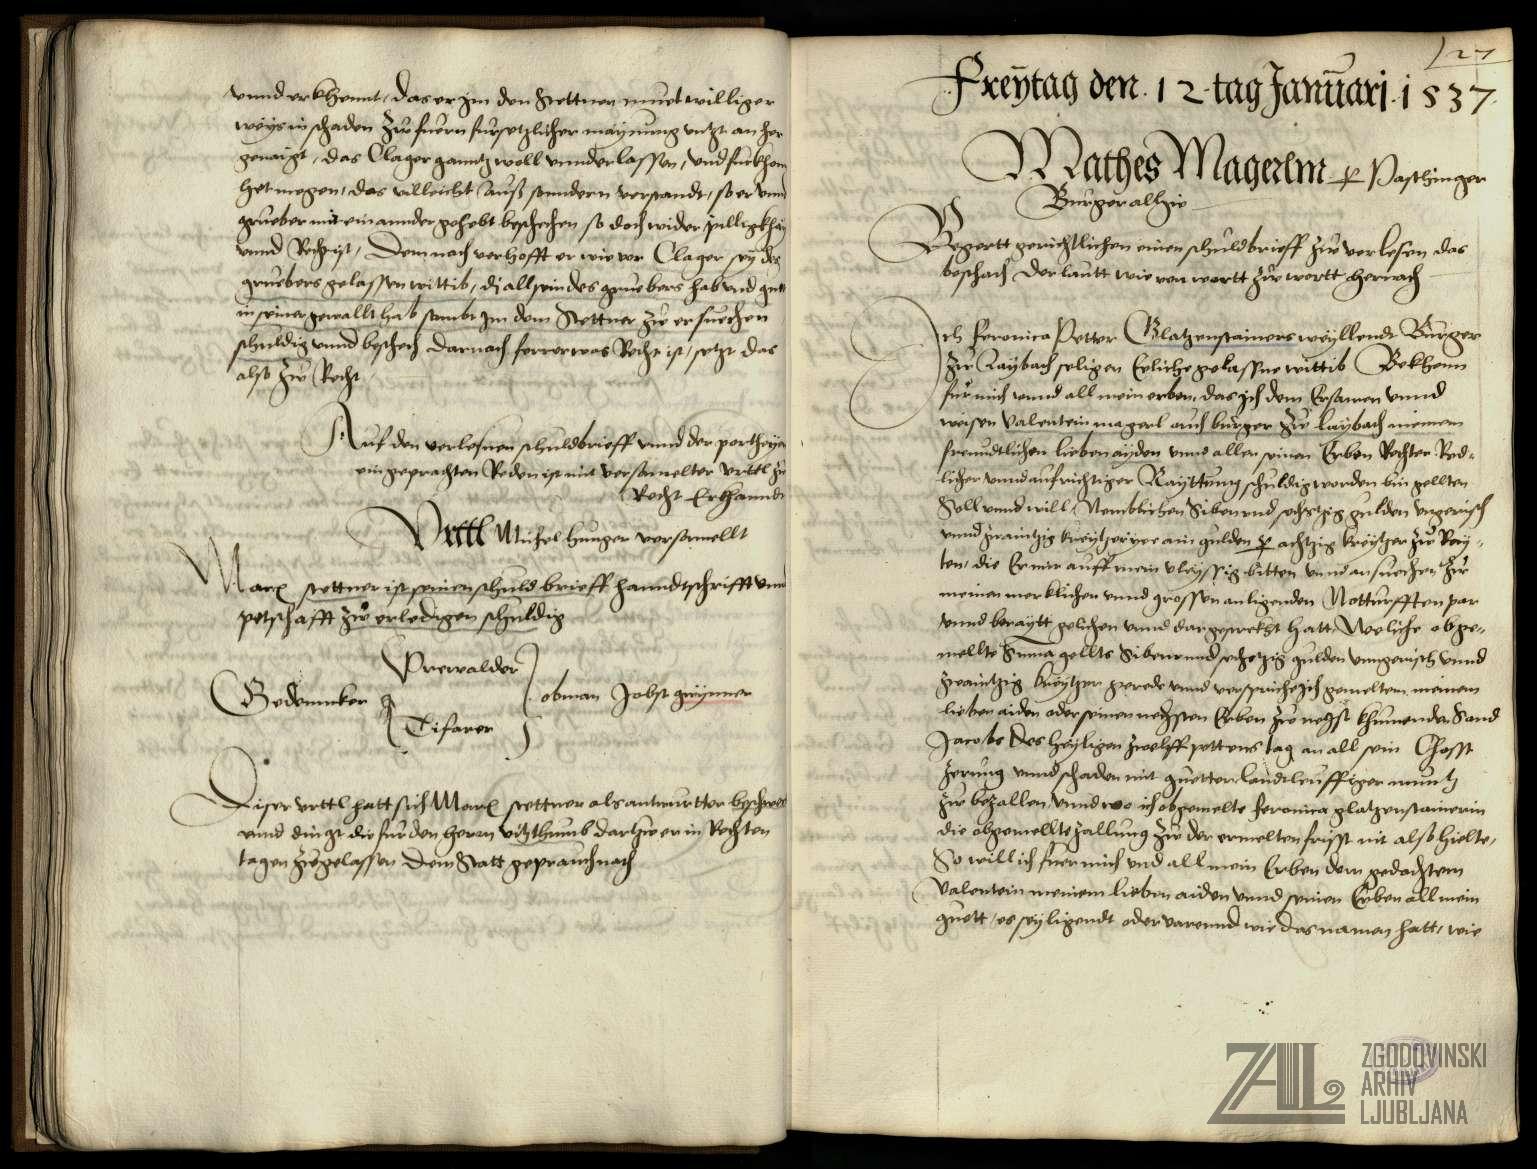 vnnd erkhennt, das er im den Stettner muetwilliger
weys in schaden zw fuern fursetzlicher maynung yetzt an her
genaigt, das Clager ganntz woll vnnderlassen, vnd furkhom
het mogen, das villeicht auß sonndern verstandt, so er vnnd
grueber mit einannder gehebt beschechen so doch wider pilligkhait
vnnd Recht ist, Demnach verhofft er wie vor Clager sey des
gruebers gelassen wittib, di all sein des gruebers hab vnd guet
in seiner gewallt hab sambt im dem Stettner zw ersuechen
schuldig vnnd beschech darnach ferrer was Recht ist, setzt das
also zw Recht
Auf den verlesnen schuldbrieff vnnd der partheyen
eingeprachten Reden ist mit versamelter vrttl zu
Recht Erkhanndt
Vrttl Michel hunger versamellt
Marx stettner ist seinen schuldbrieff hanndtschrifft vnnd
petschafft zw erledigen schuldig
Prewalder
Gedemnker obman Jobst gwynner
Tifarer
Diser vrttl hatt sich Marx stettner als antwurtter beschwert
vnnd dingt die fur den herrn vitzthumb dartzw er in Rechten
tagen zuegelassen dem Statt geprauch nach
127
Freytag den . 12 . tag Januari . 1537 .
Mathes Magerlm Pasthinger
Burger alhie
Begertt gerichtlichen einen schuldbrieff zw verlesen das
beschach der lautt wie von wortt zw wortt hernach
Ich feronica Petter Glatzenstainers weyllendt Burger
zw Laybach seligen Eeliche gelassne wittib Bekhenn
fur mich vnnd all mein erben, das ich dem Ersamen vnnd
weisen Valentein magerl auch burger zw laybach meinem
freundtlichen lieben ayden vnnd allen seinen Erben Rechter Red-
licher vnnd aufrichtiger Rayttung schuldig worden bin gellten
Soll vnnd will, Nemblichen Sibenvndsechtzig gulden vngerisch
vnnd zwaintzig kreytzer ye ain gulden achtzig kreytzer zw Ray-
ten, die Er mir auff mein vleyssig bitten vnnd ansuechen zw
meinen merklichen vnnd grossen anligenden Notturfften par
vnnd beraytt gelichen vnnd dargestrekht hatt, Weliche obge-
mellte Suma gellts Sibenvnndsechtzig gulden vnngerisch vnnd
zwaintzig kreytzer gerede vnnd versprich ich gemeltem meinem
lieben aiden oder seinen nechsten Erben zw nechst khumenden Sand
Jacobs des heyligen zwelff pottens tag an all sein Chosst
zerung vnnd schaden mit guetter landtleuffiger muntz
zw bezallen, vnnd wo ich obgemelte feronica glatzenstainerin
die obgemellte zallung zw der ermelten frisst nit also hielte,
So will ich fuer mich vnd all mein Erben dem gedachtem
Valentein meinem lieben aiden vnnd seinen Erben all mein
guett, es sey ligendt oder varennd wie das namen hatt, wie
ZAL ZGODOVINSKI
ARHIV
LJUBLJANA